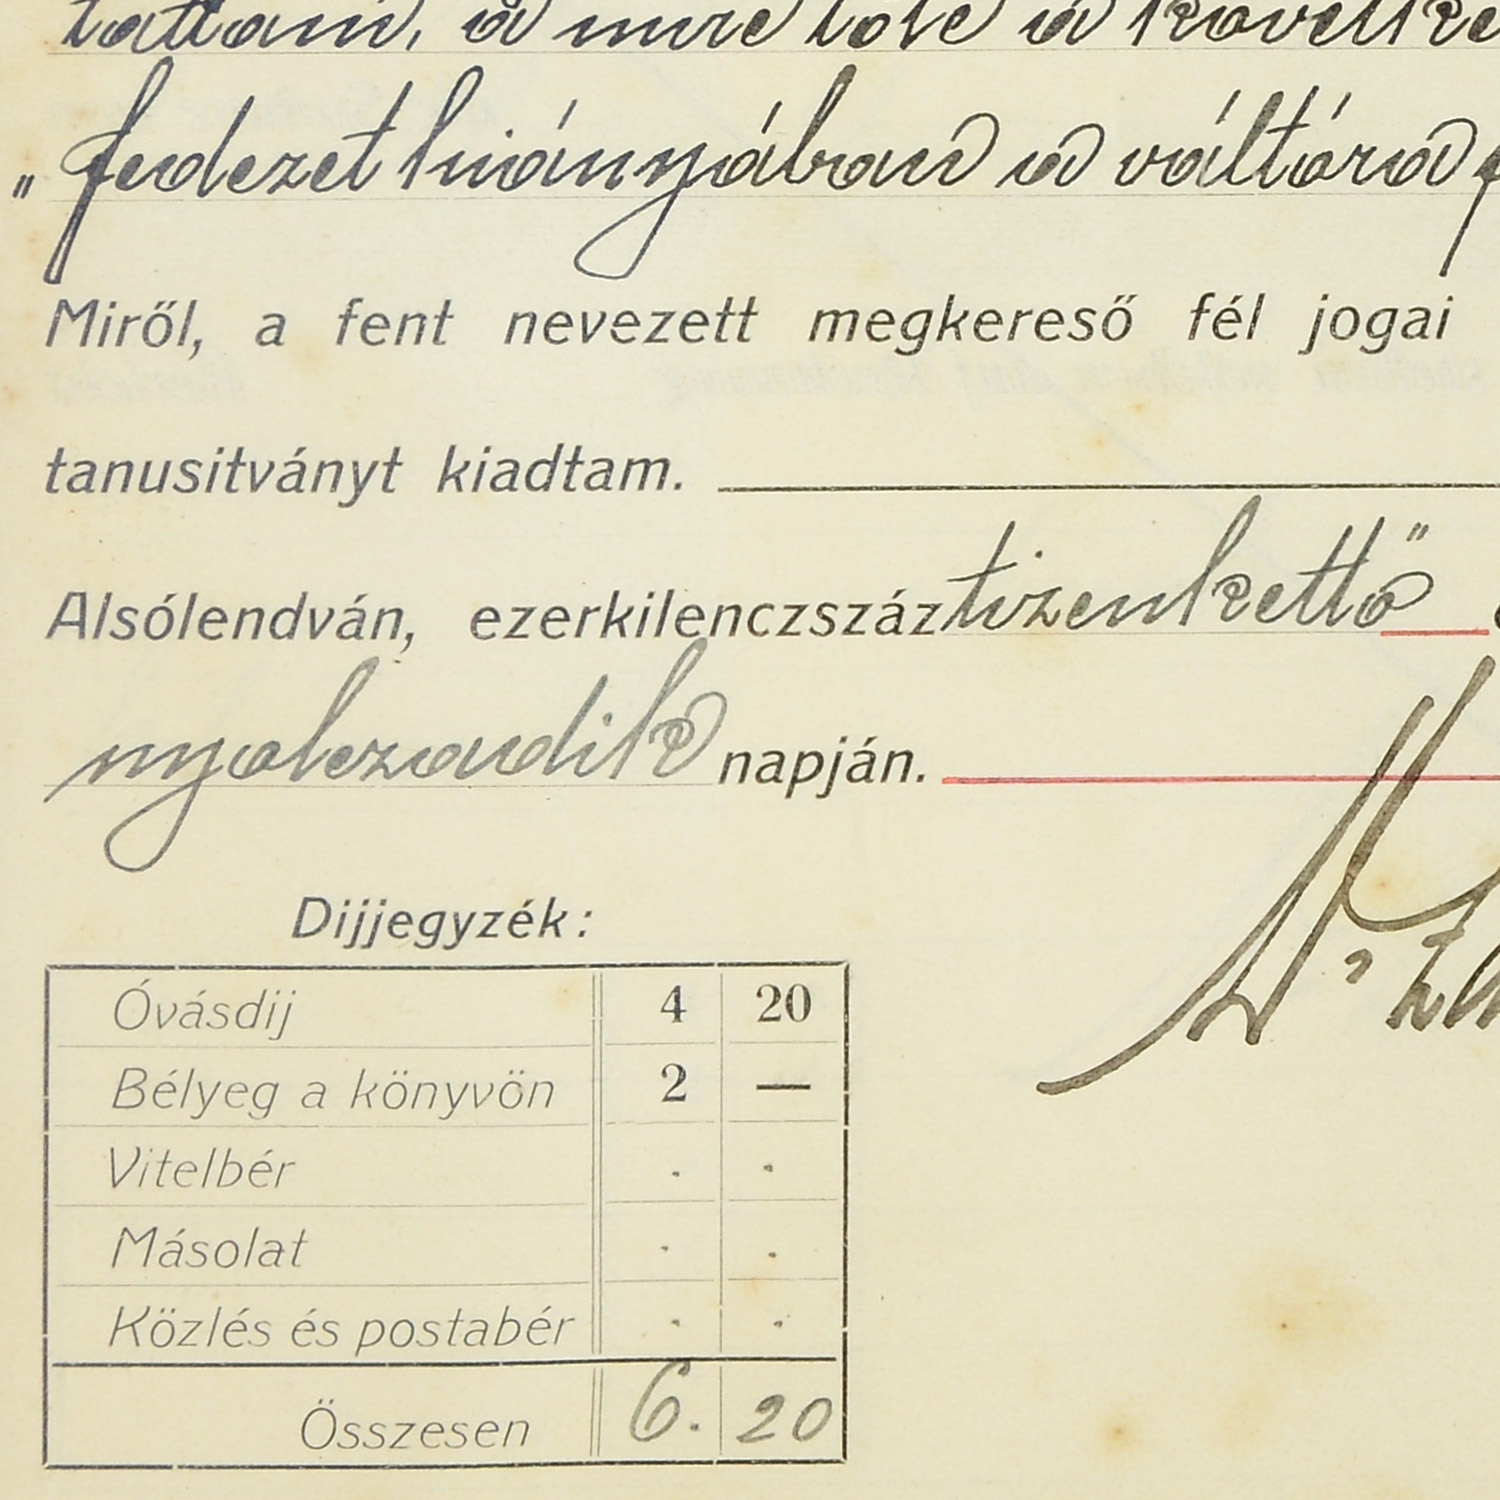 tattam, a mire tőle a követke
„fedezet hiányában a váltóra f
Miről, a fent nevezett megkereső fél jogai
tanusitványt kiadtam.
Alsólendván, ezerkilenczszáz tizenkettő
nyolczadik napján.
Dijjegyzék:
Óvásdij 4 20
Bélyeg a könyvön 2 —
Vitelbér . .
Másolat . .
Közlés és postabér . .
Összesen 6. 20